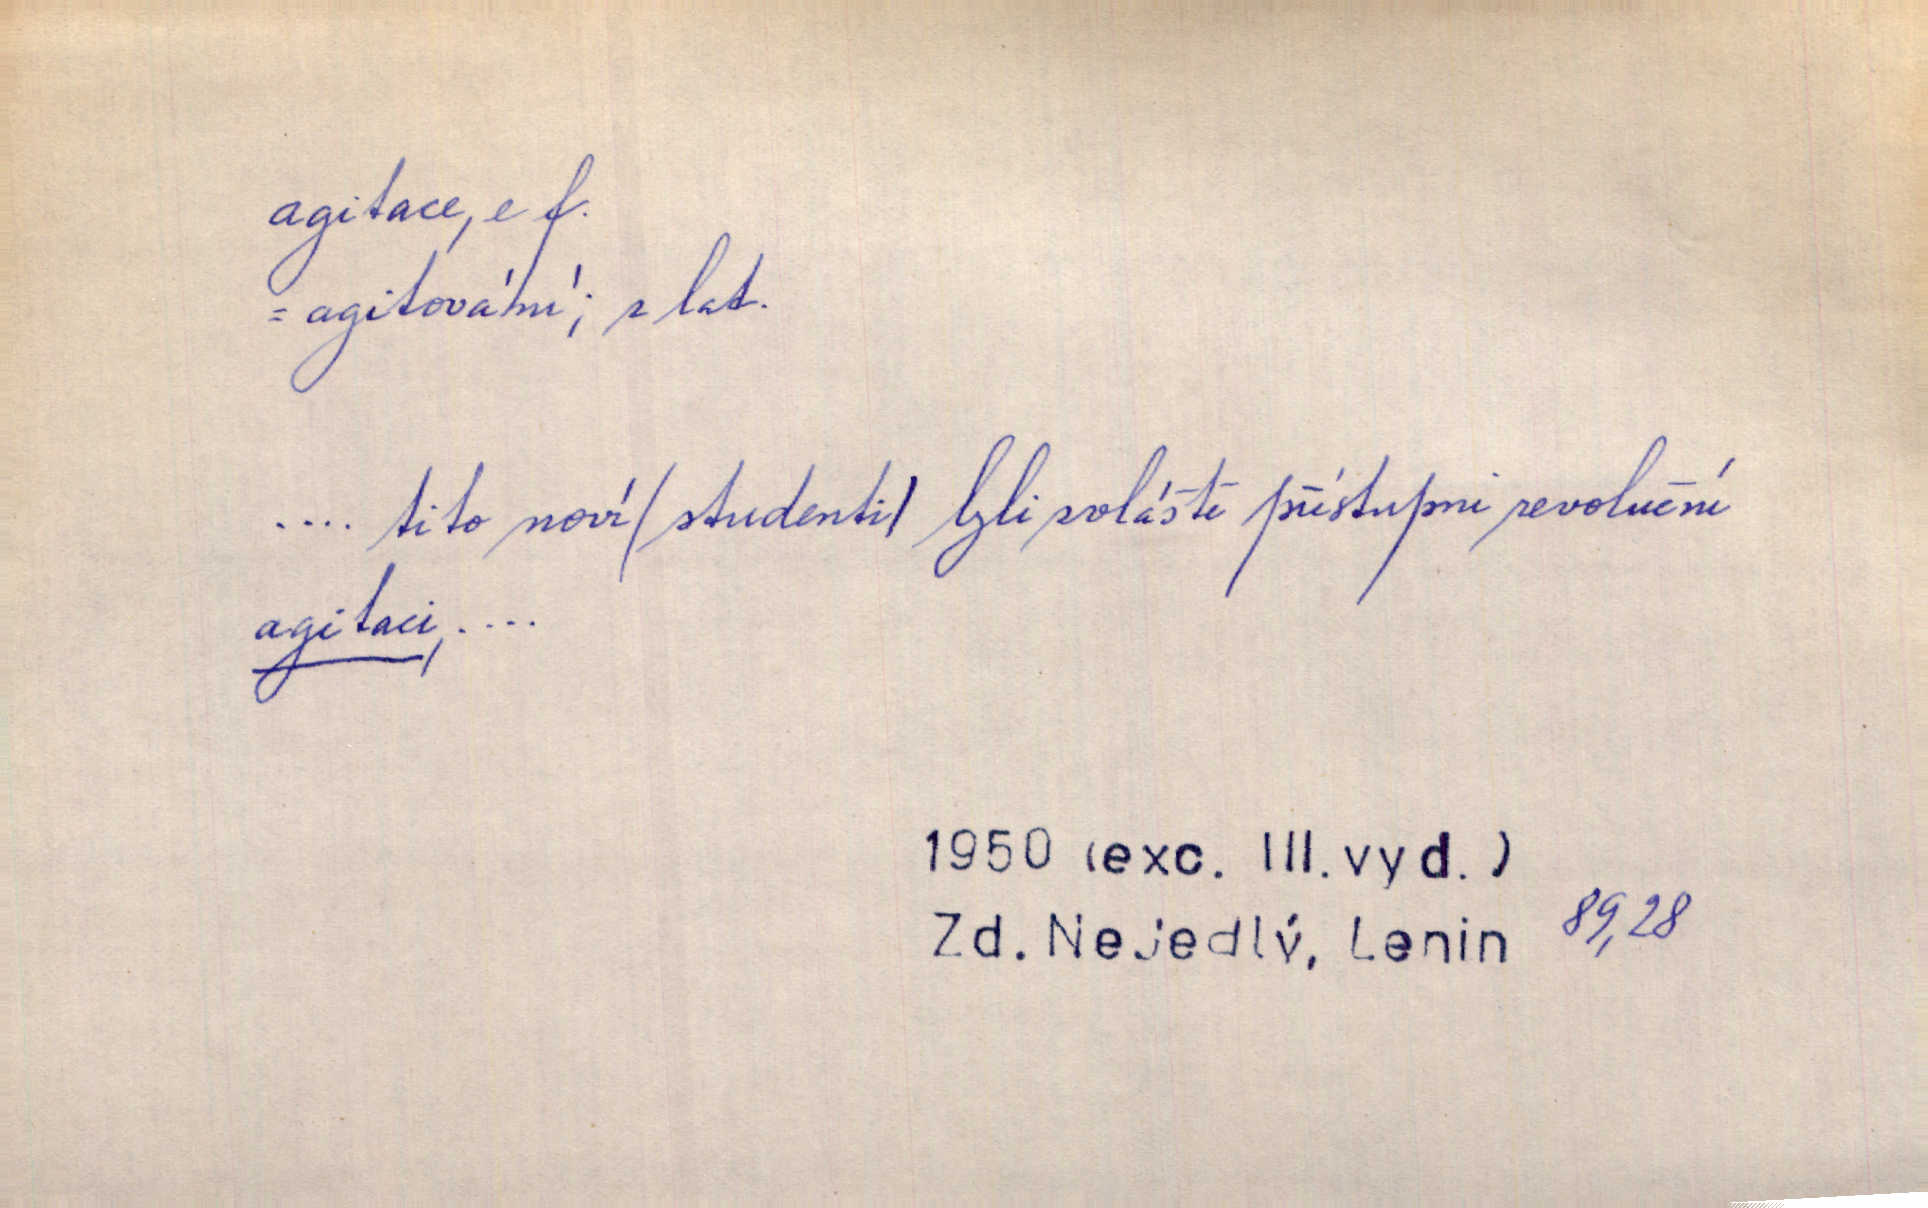 agitace, e f.
= agitování; z lat.
.... tito noví (studenti) byli zvláště přístupni revoluční
agitaci, ....
1950 (exc. III. vyd.)
Zd. Nejedlý, Lenin 89,28